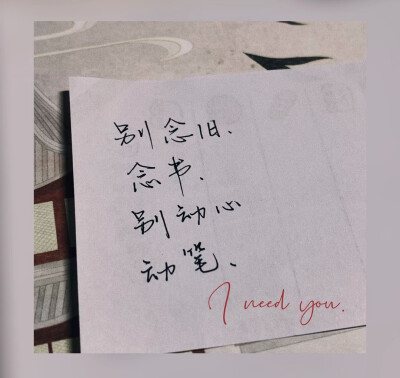 别念旧.
念书.
别动心
动笔.
I need you.